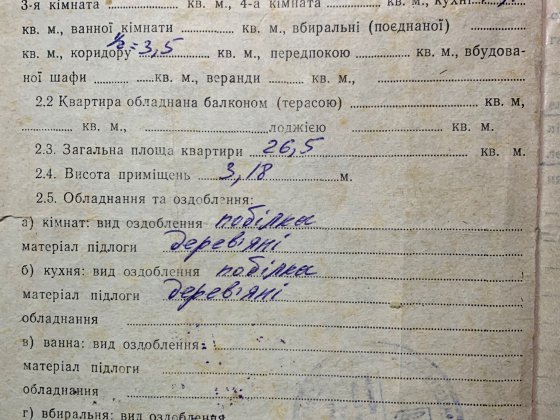 3-я кімната кв. м., 4-а кімната кв. м., кухні
кв. м., ванної кімнати кв. м., вбиральні (поєднаної)
кв. м., коридору 1/2 = 3,5 кв. м., передпокою кв. м., вбудова-
ної шафи кв. м., веранди кв. м.,
2.2 Квартира обладнана балконом (терасою) кв. м,
кв. м., лоджією кв. м.
2.3. Загальна площа квартири 26,5 кв. м.
2.4. Висота приміщень 3,18 м.
2.5. Обладнання та оздоблення:
а) кімнат: вид оздоблення побілка
матеріал підлоги дерев'яні
б) кухня: вид оздоблення побілка
матеріал підлоги дерев'яні
обладнання
в) ванна: вид оздоблення
матеріал підлоги
обладнання
г) вбиральня: вид оздоблення